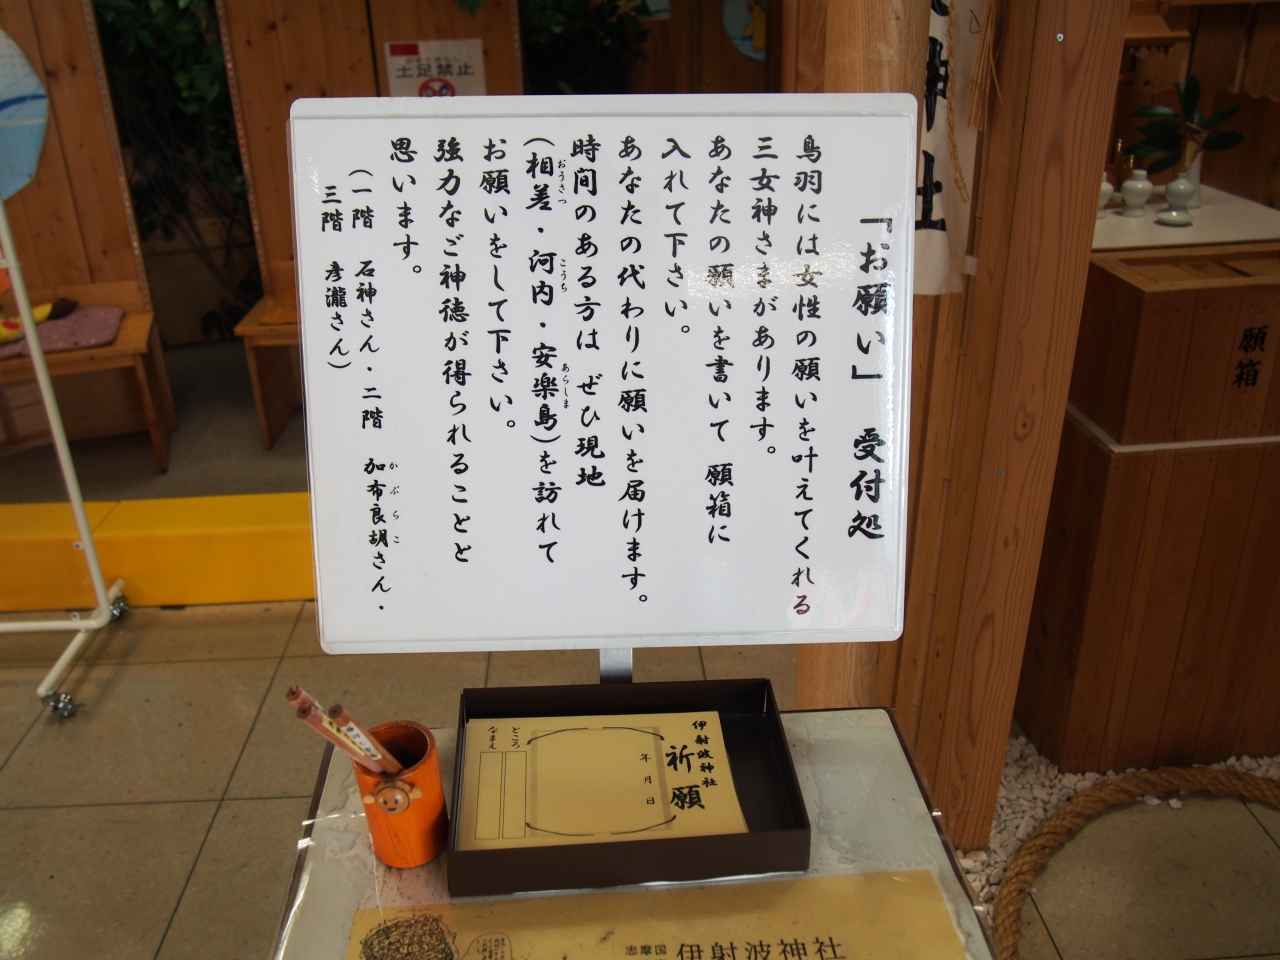 「お願い」 受付処
鳥羽には女性の願いを叶えてくれる
三女神さまがあります。
あなたの願いを書いて 願箱に
入れて下さい。
あなたの代わりに願いを届けます。
時間のある方は ぜひ現地
(相差・河内・安楽島)を訪れて
おうさつ
こうち
あらしま
お願いをして下さい。
強力なご神徳が得られることと
思います。
(一階 石神さん・二階 加布良胡さん・
かぶらこ
三階 彦瀧さん)
土足禁止
願箱
伊射波神社
祈願
年 月 日
ところ
なまえ
志摩国 伊射波神社